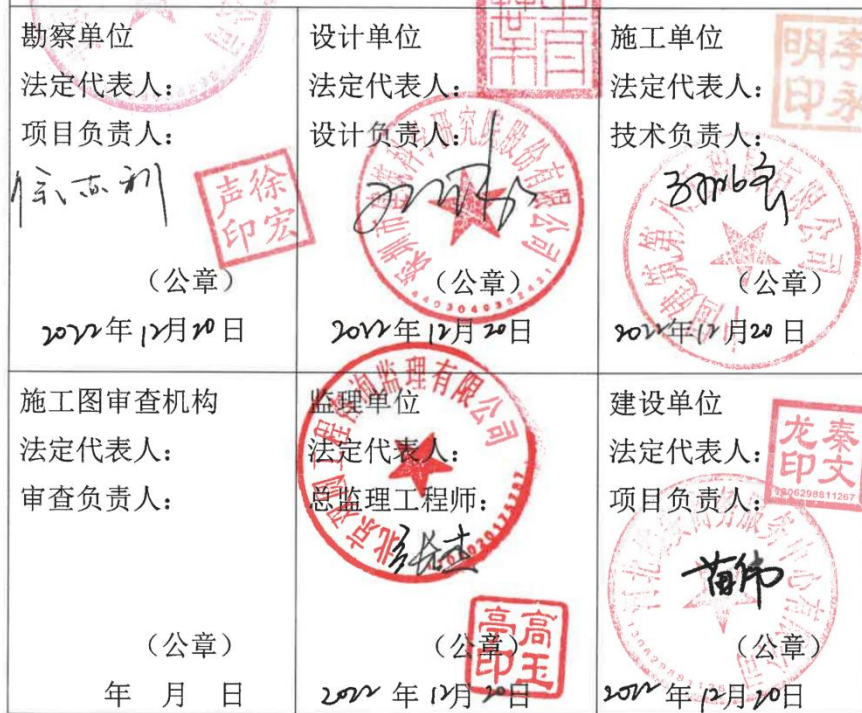 勘察单位
法定代表人：
项目负责人：
徐宏声印
（公章）
2022年12月20日
设计单位
法定代表人：
设计负责人：
深圳市建筑科学研究院股份有限公司
（公章）
2022年12月20日
施工单位
法定代表人：
李永明印
技术负责人：
（公章）
2022年12月20日
施工图审查机构
法定代表人：
审查负责人：
（公章）
年 月 日
监理单位
法定代表人：
总监理工程师：
高玉亭印
（公章）
2022年12月20日
建设单位
法定代表人：
秦文龙印
1306298811267
项目负责人：
苗伟
（公章）
2022年12月20日